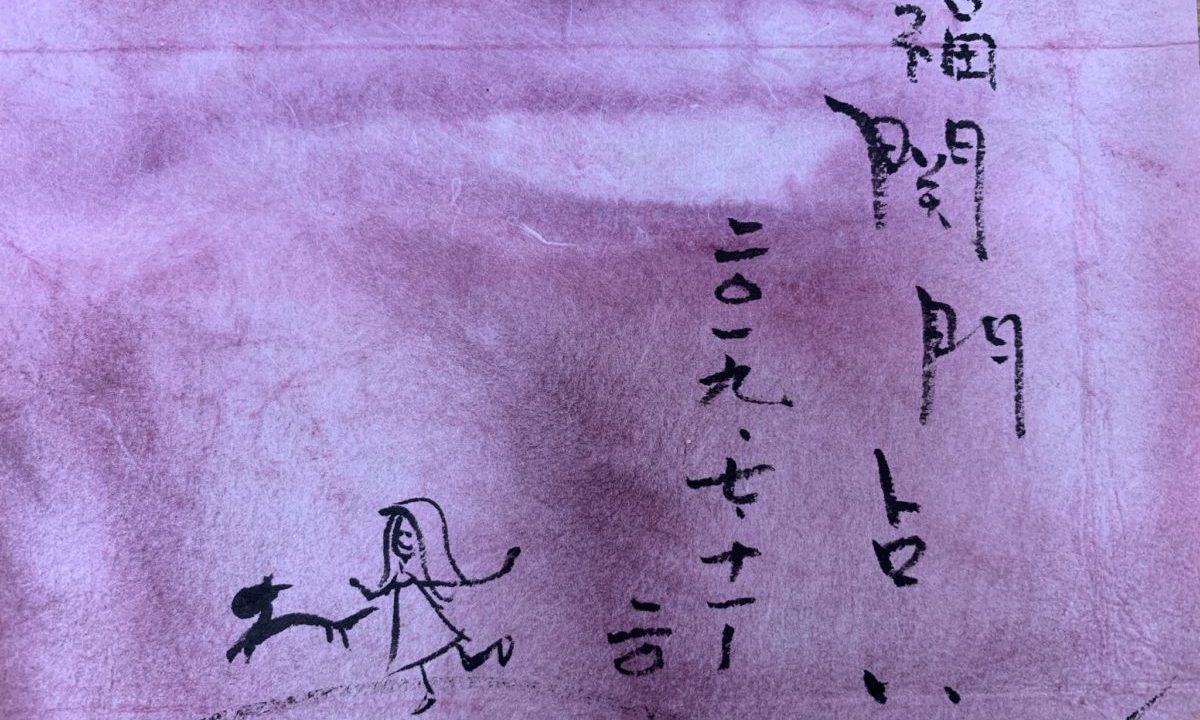 福関門占
二〇一九.七.十一